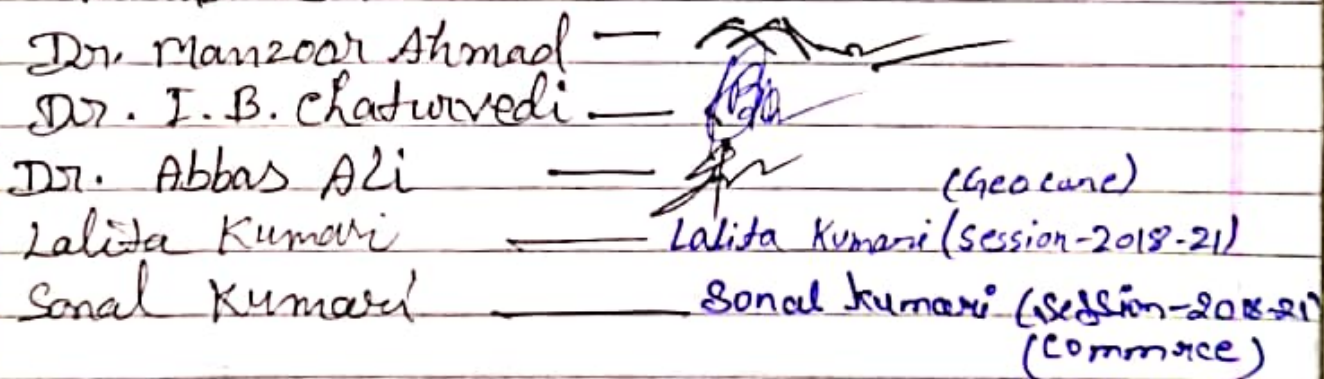 Dr. Manzoor Ahmad —
Dr. I. B. Chaturvedi —
Dr. Abbas Ali —
Lalita Kumari — Lalita Kumari (Session-2018-21)
Sonal Kumari — Sonal Kumari (Session-2018-21)
(Commrce)